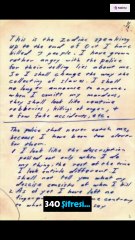 This is the Zodiac speaking
up to the end of Oct I have
killed 7 people. I have grown
rather angry with the police
for their telling lies about me.
So I shall change the way the
collecting of slaves. I shall
no longer announce to anyone.
when I comitt my murders,
they shall look like routine
robberies, killings of anger, +
a few fake accidents, etc.
The police shall never catch me,
because I have been too clever
for them.
I look like the description
passed out only when I do
my thing, the rest of the time
I look entirle different. I
shall not tell you what my
descise consists of when I kill
2 As of yet I have left no
340 Şifresi...